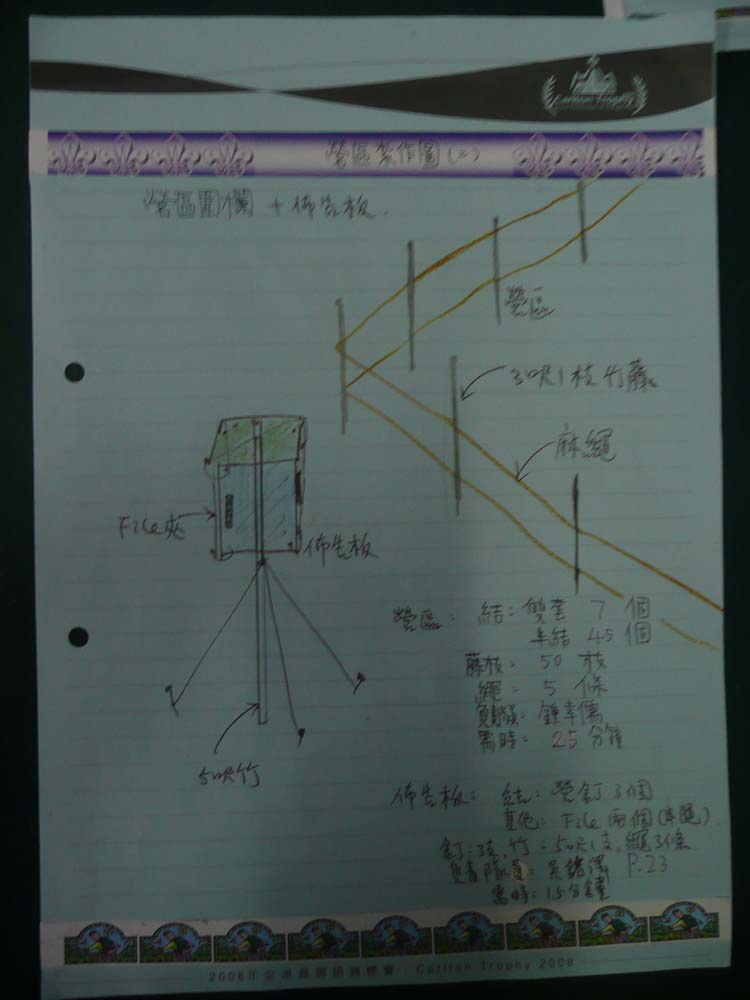 Carlton Trophy
營區製作圖(二)
營區圍欄 + 佈告板.
營區
3呎1枝竹藤
麻繩
File夾
佈告板
5呎竹
營區: 結: 雙套 7 個
半結 45 個
藤枝: 50 枝
繩: 5 條
需時: 25 分鐘
佈告板: 結: 營釘 3個
其他: File 兩個
釘: 3支, 竹: 5呎1支, 繩3條
負責隊員:
P.23
需時: 15分鐘
2008年全港 錦標賽 - Carlton Trophy 2008